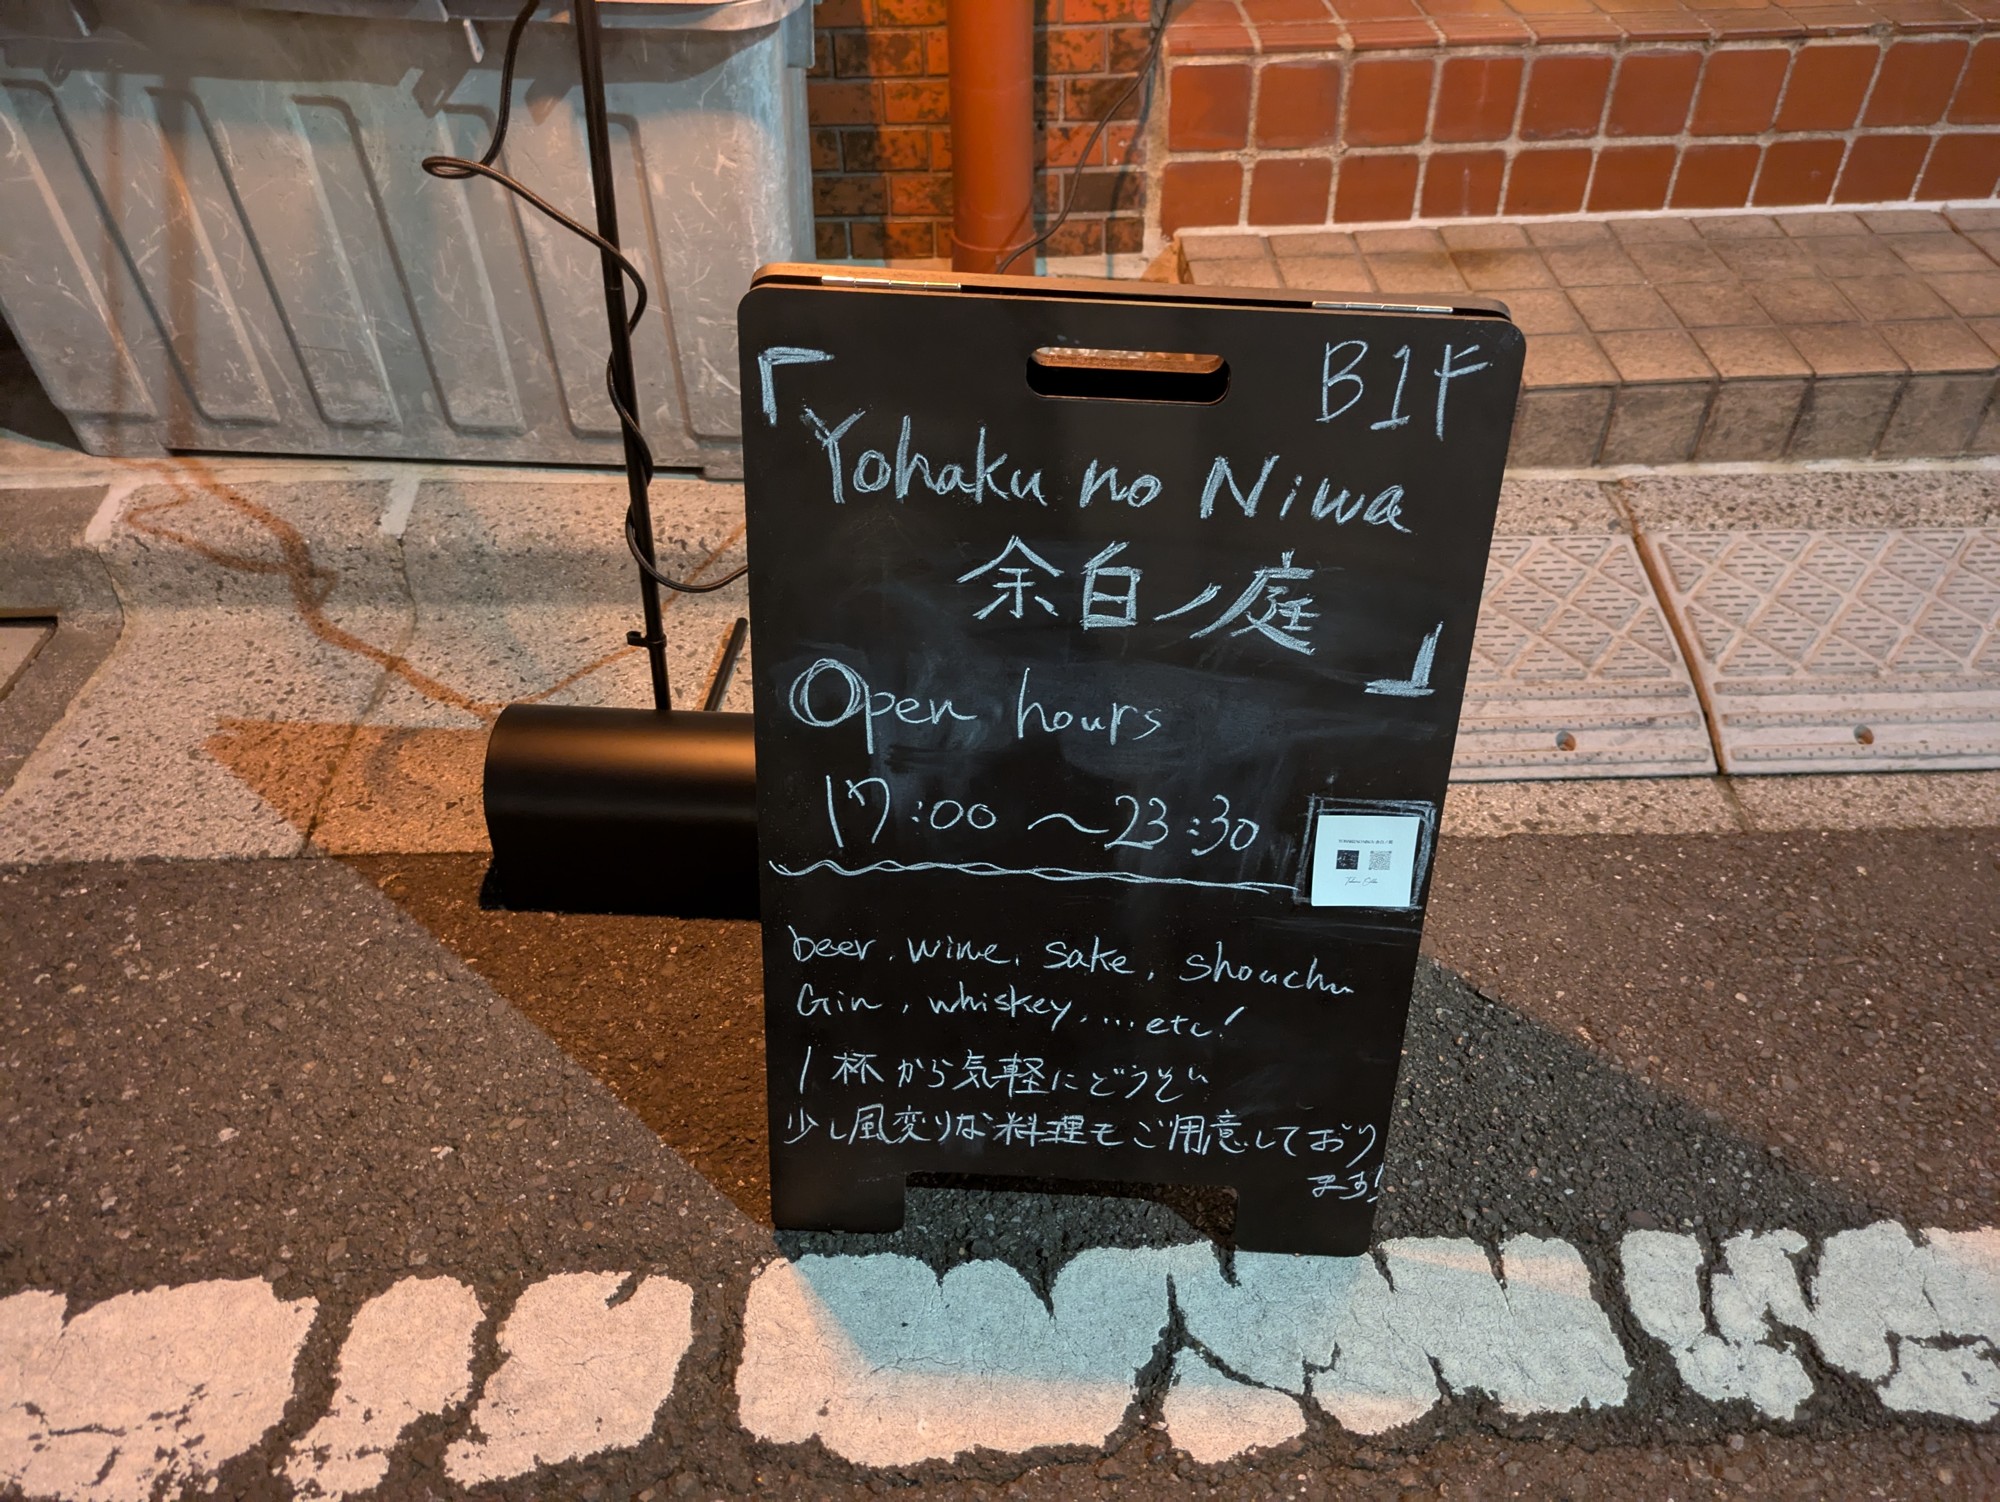 B1F
「Yohaku no Niwa
余白ノ庭」
Open hours
17:00 〜 23:30
beer, wine, sake, shouchu
Gin, whiskey, ...etc!
1杯から気軽にどうぞ
少し風変りな料理もご用意しており
ます!